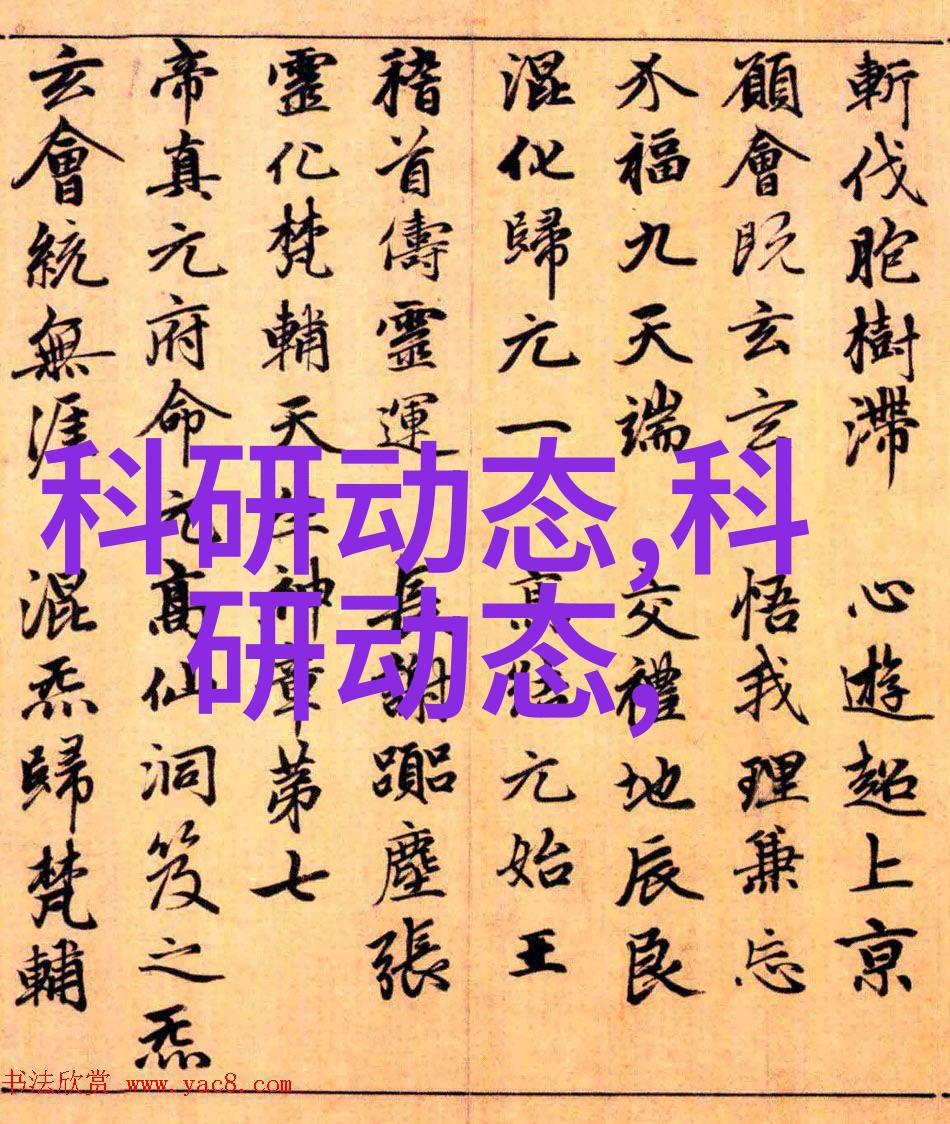 斬伐胞樹滯 心遊超上京
願會既玄玄 悟我理兼忘
水福九天端 交禮地辰良
混化歸元一 高結元始王
稽首儔靈運 長謝躡塵張
靈化梵輔天 神章第七
帝真元府命元高仙洞笈之炁
玄會統無涯 混炁歸梵輔
科研动态,科
研动态,
书法欣赏 www.yac8.com